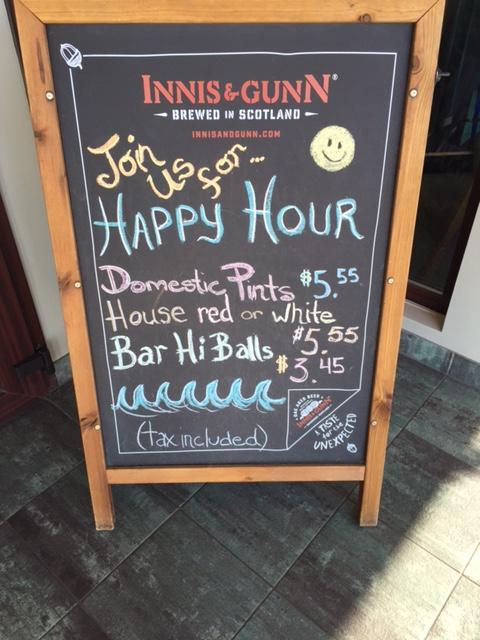 INNIS & GUNN®
BREWED IN SCOTLAND
INNISANDGUNN.COM
Join
us for...
HAPPY HOUR
Domestic Pints $5.55
House red or white
$5.55
Bar Hi Balls $3.45
(tax included)
OAK AGED BEER
INNIS & GUNN
A TASTE
for the
UNEXPECTED